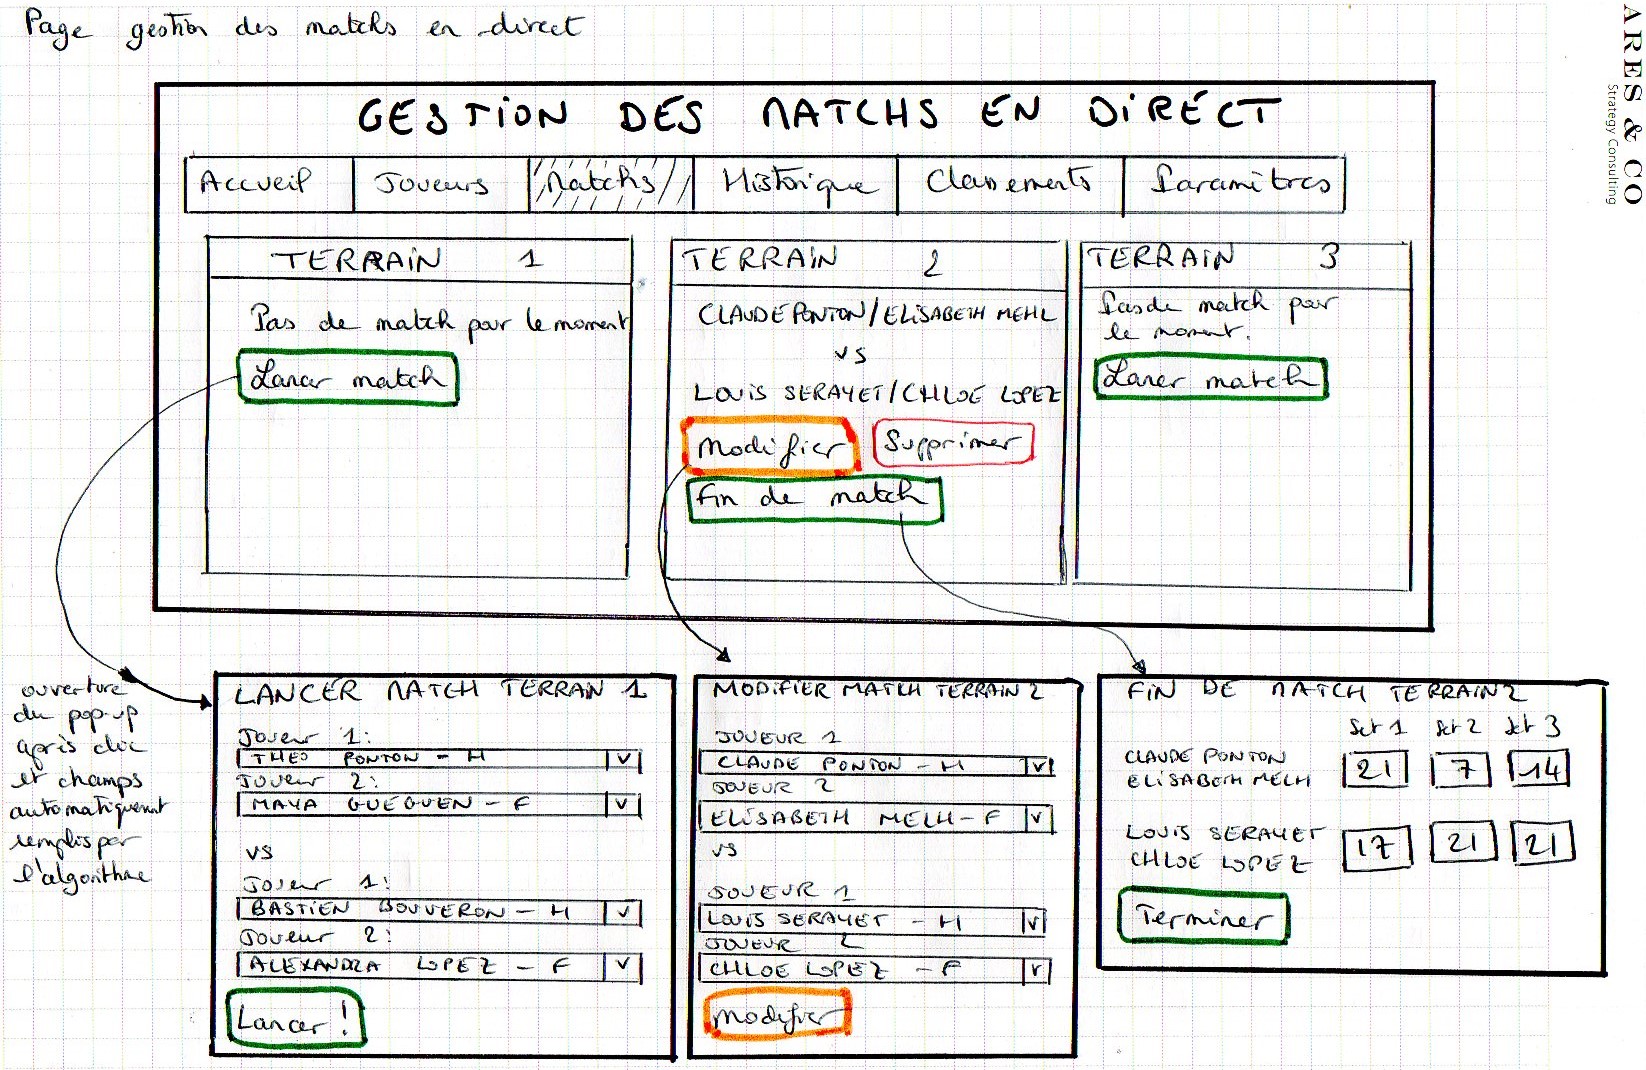 Page gestion des matchs en direct
ARES & CO
Strategy Consulting
GESTION DES MATCHS EN DIRECT
Accueil Joueurs Matchs Historique Classements Paramètres
TERRAIN 1
Pas de match pour le moment
Lancer match
TERRAIN 2
CLAUDE PONTON / ELISABETH MEHL
VS
LOUIS SERAYET / CHLOE LOPEZ
Modifier Supprimer
Fin de match
TERRAIN 3
Pas de match pour
le moment.
Lancer match
ouverture
du pop-up
après clic
et champs
automatiquement
remplis par
l'algorithme
LANCER MATCH TERRAIN 1
Joueur 1:
THEO PONTON - H V
Joueur 2:
MAYA GUEGUEN - F V
VS
Joueur 1:
BASTIEN BOUVERON - H V
Joueur 2:
ALEXANDRA LOPEZ - F V
Lancer !
MODIFIER MATCH TERRAIN 2
JOUEUR 1
CLAUDE PONTON - H V
JOUEUR 2
ELISABETH MELH - F V
VS
JOUEUR 1
LOUIS SERAYET - H V
JOUEUR 2
CHLOE LOPEZ - F V
Modifier
FIN DE MATCH TERRAIN 2
Set 1 Set 2 Set 3
CLAUDE PONTON
ELISABETH MELH
21 7 14
LOUIS SERAYET
CHLOE LOPEZ
17 21 21
Terminer